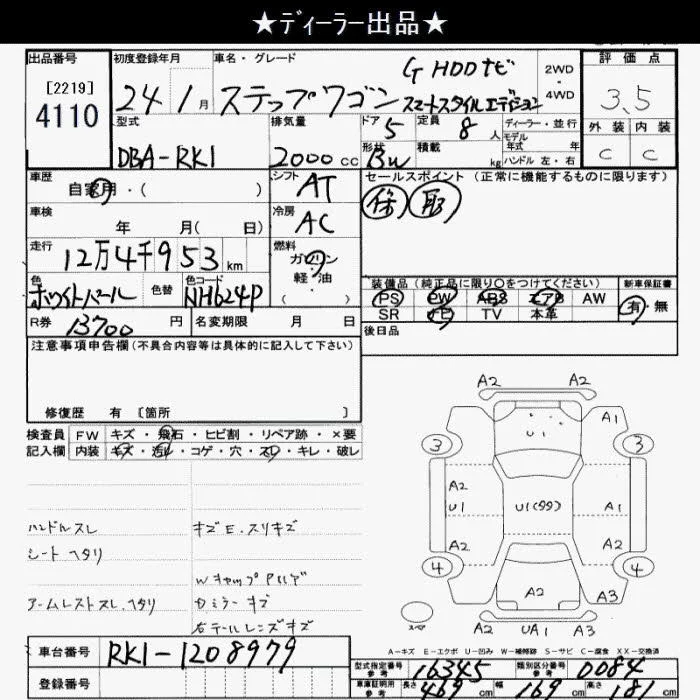 ★ディーラー出品★
出品番号
[2219]
4110
初度登録年月
24年1月
車名・グレード
ステップワゴン
G HDDナビ
スマートスタイルエディション
2WD
・
4WD
評価点
3.5
外装 内装
C C
型式
DBA-RK1
排気量
2000cc
ドア
5
形状
BW
定員
8人
積載
kg
ディーラー・並行
モデル
年式 年
ハンドル 左・右
車歴
自家用・( )
シフト
AT
車検
年 月( 日)
冷房
AC
走行
12万4千953km
燃料
ガソリン
軽・油
( )
色
ホワイトパール
色替
色コード
NH624P
R券
13700円
名変期限 月 日
セールスポイント(正常に機能するものに限ります)
保 取
装備品(純正品に限り〇をつけてください)
PS PW ABS エアB AW
SR ナビ TV 本革
新車保証書
有・無
後日品
注意事項申告欄(不具合内容等は具体的に記入して下さい)
修復歴 有 [箇所 ]
検査員
記入欄
FW キズ・飛石・ヒビ割・リペア跡・×要
内装 キズ・汚れ・コゲ・穴・スレ・キレ・破レ
ハンドルスレ
シートヘタリ
アームレストスレ.ヘタリ
キズE.スリキズ
Wキャップ
ドミラーキズ
右テールレンズキズ
A2 A2
U1
A1
3 3
A2
U1
U1(99)
A1
A2 A2
4 4
A2
A3
スペア
A2 UA1 A3
A-キズ E-エクボ U-凹み W-補修跡 S-サビ C-腐食 XX-交換済
車台番号
RK1-1208979
登録番号
型式指定番号
参考
16345
類別区分番号
参考
0084
車庫証明用
参考
長さ 469cm 幅 169cm 高さ 181cm